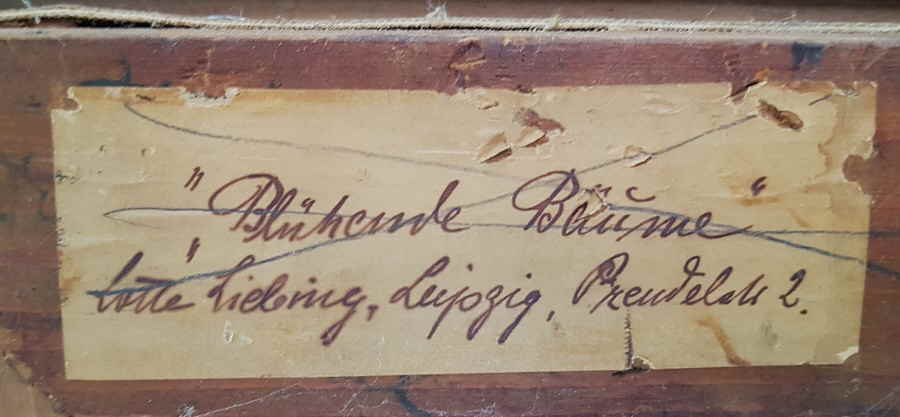 "Blühende Bäume"
Lotte Liebing, Leipzig, Prendelstr 2.